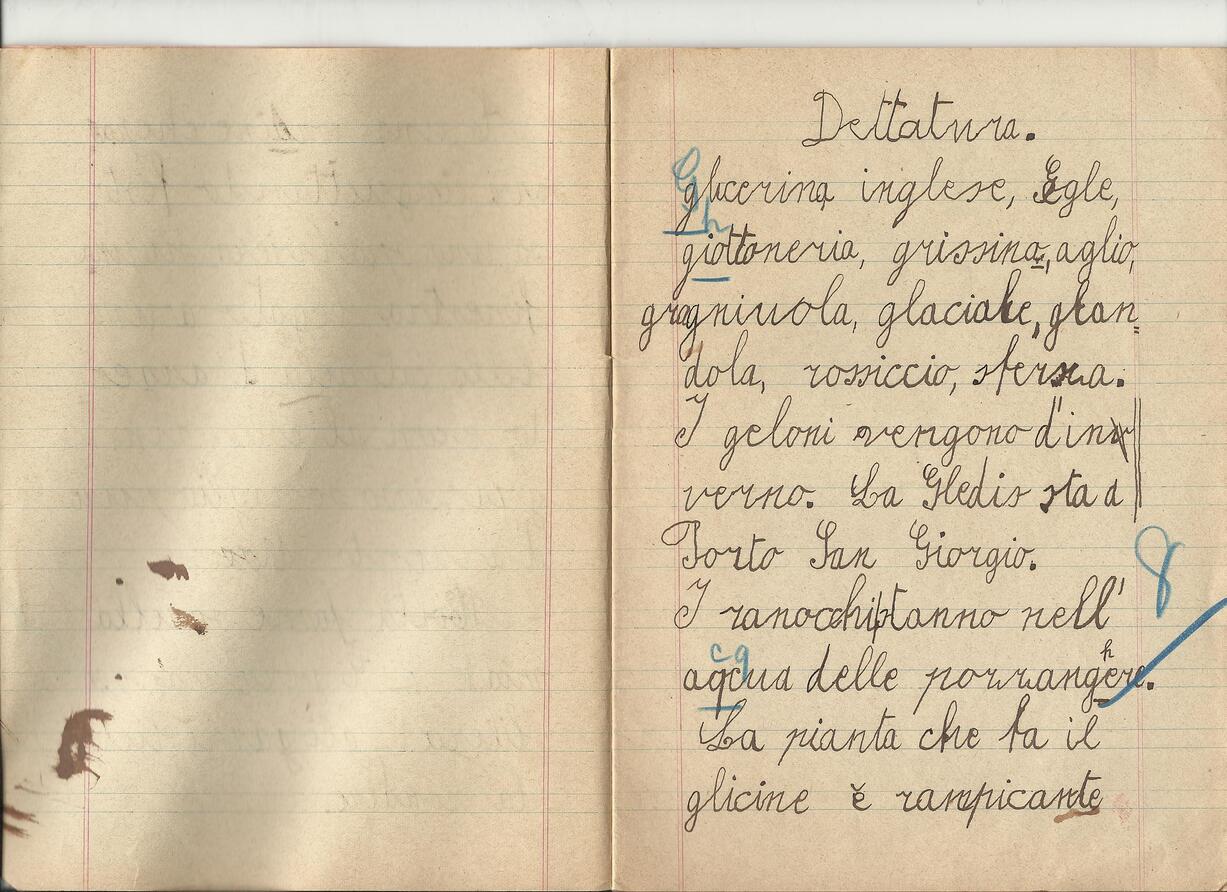 Dettatura.
glicerina, inglese, Egle,
giottoneria, grissina, aglio,
gragniuola, glaciale, glan=
dola, rossiccio, sferza.
I geloni vengono d'in
verno. La Gledis sta a
Porto San Giorgio.
I ranocchi stanno nell'
aqcua delle pozzanghere.
La pianta che fa il
glicine è rampicante
8